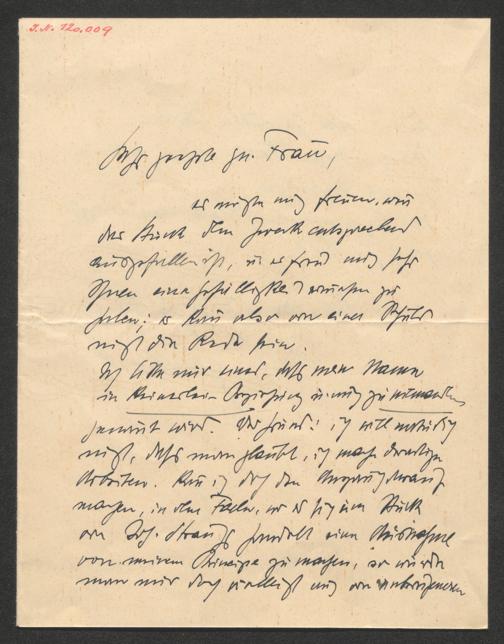 I.N. 120.009
Sehr geehrte gn. Frau,
es würde mich freuen, wenn
das Stück dem Zweck entsprechend
ausgefallen ist, u. es freut mich sehr
Ihnen eine Gefälligkeit erwiesen zu
haben: es kann also von einer Schuld
nicht die Rede sein.
Ich bitte nur, dass mein Name
in keinerlei Beziehung u. auch zu niemandem
genannt wird. Der Grund: ich will
nicht, dass man glaubt, ich mache derartige
Arbeiten. Kann ich doch den Anspruch
machen, in dem Falle, wo es sich um Stück
von Joh. Strauß handelt eine Ausnahme
von meinem Prinzipe zu machen, so würde
man mir doch vielleicht auch von